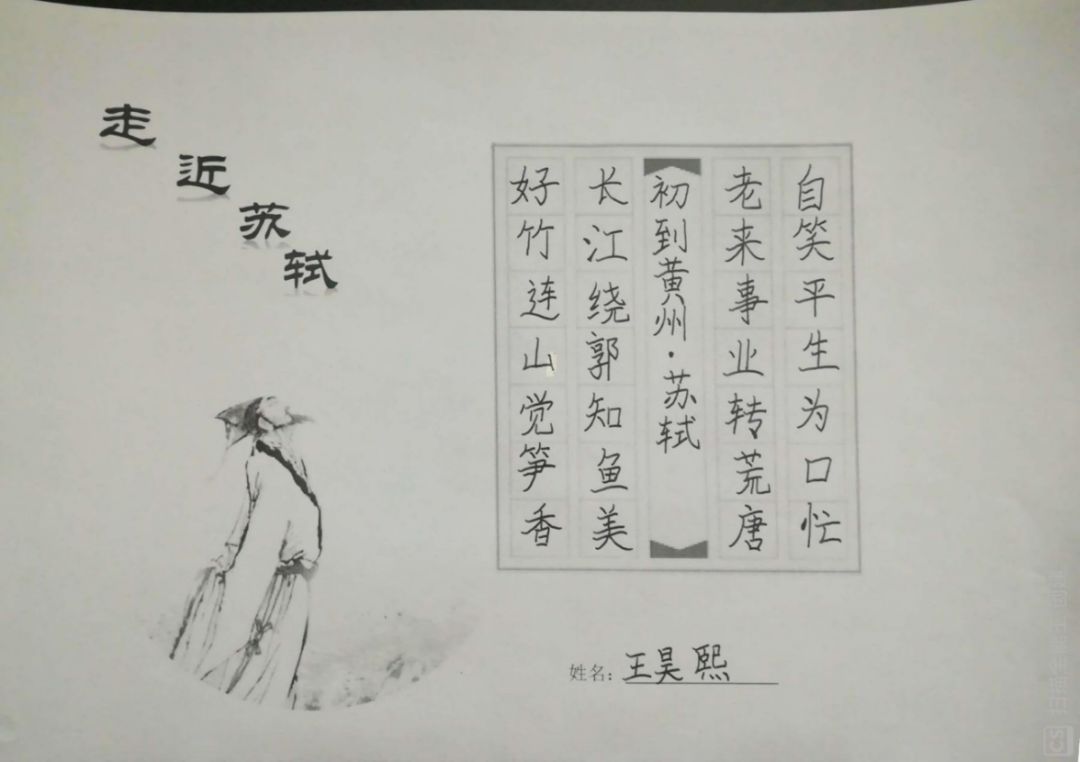 走近苏轼
自笑平生为口忙
老来事业转荒唐
初到黄州·苏轼
长江绕郭知鱼美
好竹连山觉笋香
姓名：王昊熙
CS 扫描全能王 创建